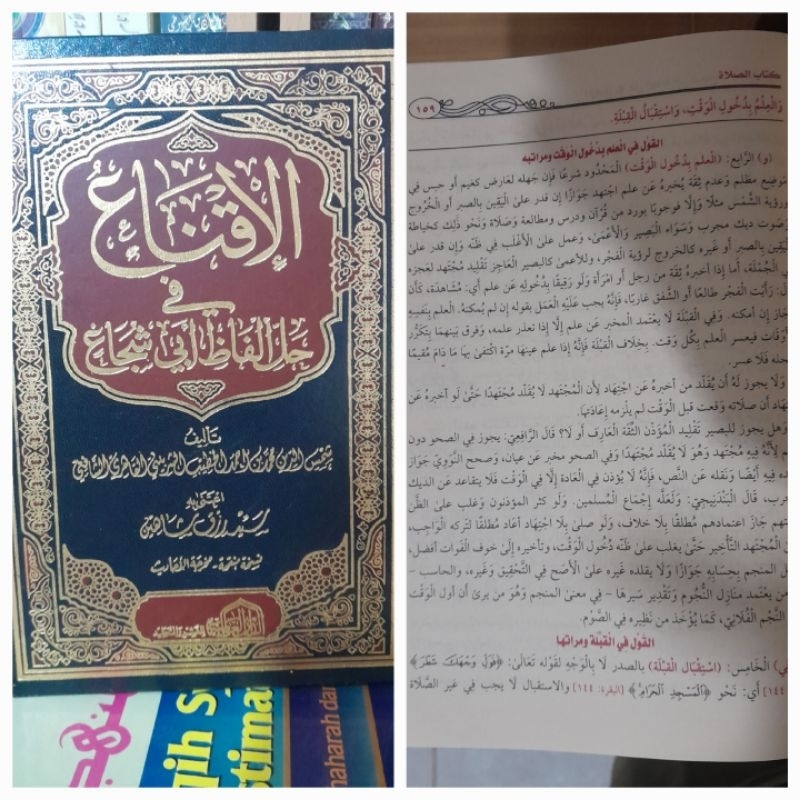 الإقناع
في
حل ألفاظ أبي شجاع
تأليف
شمس الدين محمد بن أحمد الخطيب الشربيني القاهري الشافعي
اعتنى به
سيد زق شاهين
نسخة منقحة - مخرجة الأحاديث
qih S
stima
maharah dan
كتاب الصلاة
١٥٩
وَالْعِلْمُ بِدُخُولِ الْوَقْتِ، وَاسْتِقْبَالُ الْقِبْلَةِ.
القول في العلم بدخول الوقت ومراتبه
(و) الرَّابع: (الْعلم بِدُخُول الْوَقْت) الْمَحْدُود شرعًا فَإِن جهله لعَارض كغيم أو حبس في
مَوضِع مظلم وَعدم ثِقَة يُخبرهُ عَن علم اجْتهد جَوَازًا إِن قدر على الْيَقِين بِالصبرِ أو الْخُرُوج
ورؤية الشَّمْس مثلًا وَإِلَّا فوجوبًا بورد من قُرْآن ودرس ومطالعة وَصَلَاة وَنَحْو ذَلِك كخياطة
وَصَوت ديك مجرب وَسَوَاء الْبَصِير وَالْأَعْمَى، وَعمل على الْأَغْلَب فِي ظَنّه وَإِن قدر على
الْيَقِين بِالصبرِ أَو غَيره كالخروج لرؤية الْفجْر، وللأعمى كالبصير الْعَاجِز تَقْلِيد مُجْتَهد لعَجزه
فِي الْجُمْلَة، أما إِذا أخبرهُ ثِقَة من رجل أَو امْرَأَة وَلَو رَقِيقًا بِدُخُولِهِ عَن علم أَي: مُشَاهدَة، كَأَن
قَالَ: رَأَيْت الْفجْر طالعًا أَو الشَّفق غاربًا، فَإِنَّهُ يجب عَلَيْهِ الْعَمَل بقوله إِن لم يُمكنهُ. الْعلم بِنَفسِهِ
وَجَاز إِن أمكنه. وَفِي الْقبْلَة لَا يعْتَمد الْمخبر عَن علم إِلَّا إِذا تعذر علمه، وَفرق بَينهمَا بِتَكَرُّر
الْأَوْقَات فيعسر الْعلم بِكُل وَقت. بِخِلَاف الْقبْلَة فَإِنَّهُ إِذا علم عينهَا مرّة اكْتفى بهَا مَا دَامَ مُقيما
بمحله فَلَا عسر.
وَلَا يجوز لَهُ أَن يُقَلّد من أخبرهُ عَن اجْتِهَاد لِأَن الْمُجْتَهد لَا يُقَلّد مُجْتَهدًا حَتَّى لَو أخبرهُ عَن
اجْتِهَاد أَن صلَاته وَقعت قبل الْوَقْت لم يلْزمه إِعَادَتهَا.
وَهل يجوز للبصير تَقْلِيد الْمُؤَذّن الثِّقَة الْعَارِف أَو لَا؟ قَالَ الرَّافِعِيّ: يجوز فِي الصحو دون
الْغَيْم لِأَنَّهُ فِيهِ مُجْتَهد وَهُوَ لَا يُقَلّد مُجْتَهدًا وَفِي الصحو مخبر عَن عيان، وَصحح النَّوَوِيّ جَوَاز
تَقْلِيده فِيهِ أَيْضا وَنَقله عَن النَّص، فَإِنَّهُ لَا يُؤذن فِي الْعَادة إِلَّا فِي الْوَقْت فَلَا يتقاعد عَن الديك
المجرب، قَالَ الْبَنْدَنِيجِيّ: وَلَعَلَّه إِجْمَاع الْمُسلمين. وَلَو كثر المؤذنون وَغلب على الظَّن
إصابتهم جَازَ اعتمادهم مُطلقًا بِلَا خلاف، وَلَو صلى بِلَا اجْتِهَاد أعَاد مُطلقًا لتَركه الْوَاجِب،
وعلى الْمُجْتَهد التَّأْخِير حَتَّى يغلب على ظَنّه دُخُول الْوَقْت، وتأخيره إِلَى خوف الْفَوات أفضل،
وَيعْمل المنجم بِحِسَابِهِ جَوَازًا وَلَا يقلده غَيره على الْأَصَح فِي التَّحْقِيق وَغَيره، والحاسب –
وَهُوَ من يعْتَمد منَازِل النُّجُوم وَتَقْدِير سَيرهَا – فِي معنى المنجم وَهُوَ من يرى أَن أول الْوَقْت
طُلُوع النَّجْم الْفُلَانِيّ، كَمَا يُؤْخَذ من نَظِيره فِي الصَّوْم.
القول في القبلة ومراتبها
الْخَامِس: (اسْتِقْبَال الْقبْلَة) بالصدر لَا بِالْوَجْهِ لقَوْله تَعَالَى: ﴿فَوَلِّ وَجْهَكَ شَطْرَ﴾
[١٤٤] أَي: نَحْو ﴿الْمَسْجِدِ الْحَرَامِ﴾ [البقرة: ١٤٤] والاستقبال لَا يجب فِي غير الصَّلَاة